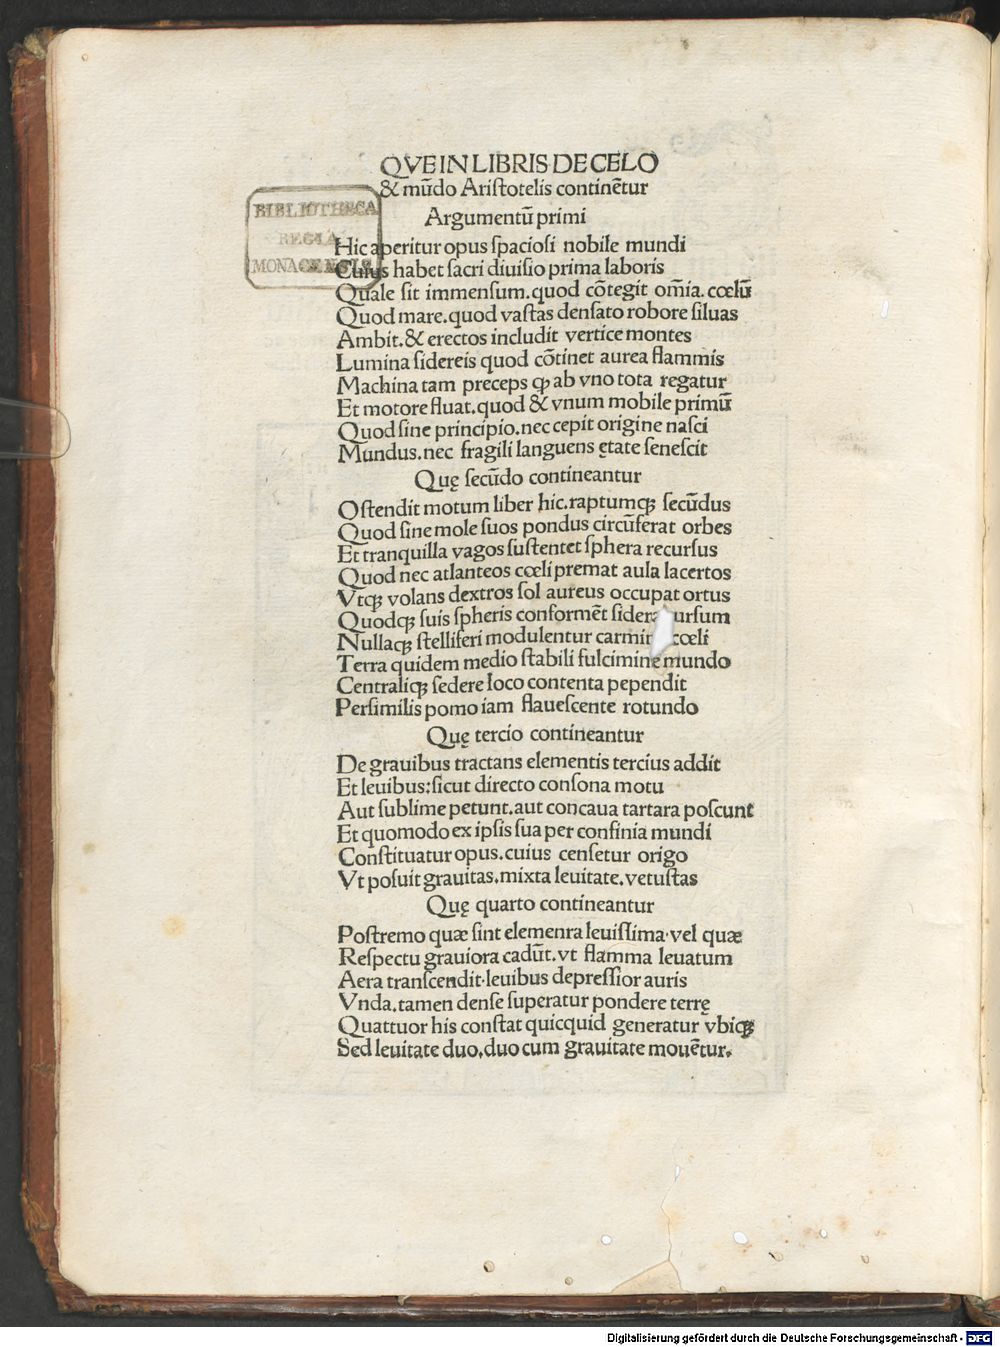 QVE IN LIBRIS DE CELO
& mūdo Ariſtotelis continētur
BIBLIOTHECA
REGIA
MONACENSIS
Argumentū primi
Hic aperitur opus ſpacioſi nobile mundi
Cuius habet ſacri diuiſio prima laboris
Quale ſit immenſum. quod cōtegit om̄ia. cœlū
Quod mare. quod vaſtas denſato robore ſiluas
Ambit. & erectos includit vertice montes
Lumina ſidereis quod cōtinet aurea flammis
Machina tam preceps ꝙ ab vno tota regatur
Et motore fluat. quod & vnum mobile primū
Quod ſine principio. nec cepit origine naſci
Mundus. nec fragili languens ętate ſeneſcit
Quę ſecūdo contineantur
Oſtendit motum liber hic. raptumqꝫ ſecūdus
Quod ſine mole ſuos pondus circūferat orbes
Et tranquilla vagos ſuſtentet ſphera recurſus
Quod nec atlanteos cœli premat aula lacertos
Vtqꝫ volans dextros ſol aureus occupat ortus
Quodqꝫ ſuis ſpheris conformēt ſidera urſum
Nullaqꝫ ſtelliferi modulentur carmin cœli
Terra quidem medio ſtabili fulcimine mundo
Centraliqꝫ ſedere loco contenta pependit
Perſimilis pomo iam flaueſcente rotundo
Quę tercio contineantur
De grauibus tractans elementis tercius addit
Et leuibus: ſicut directo conſona motu
Aut ſublime petunt. aut concaua tartara poſcunt
Et quomodo ex ipſis ſua per confinia mundi
Conſtituatur opus. cuius cenſetur origo
Vt poſuit grauitas. mixta leuitate. vetuſtas
Quę quarto contineantur
Poſtremo quæ ſint elemenra leuiſſima· vel quæ
Reſpectu grauiora cadūt. vt flamma leuatum
Aera tranſcendit· leuibus depreſſior auris
Vnda. tamen denſe ſuperatur pondere terrę
Quattuor his conſtat quicquid generatur vbiqꝫ
Sed leuitate duo. duo cum grauitate mouētur.
Digitalisierung gefördert durch die Deutsche Forschungsgemeinschaft - DFG